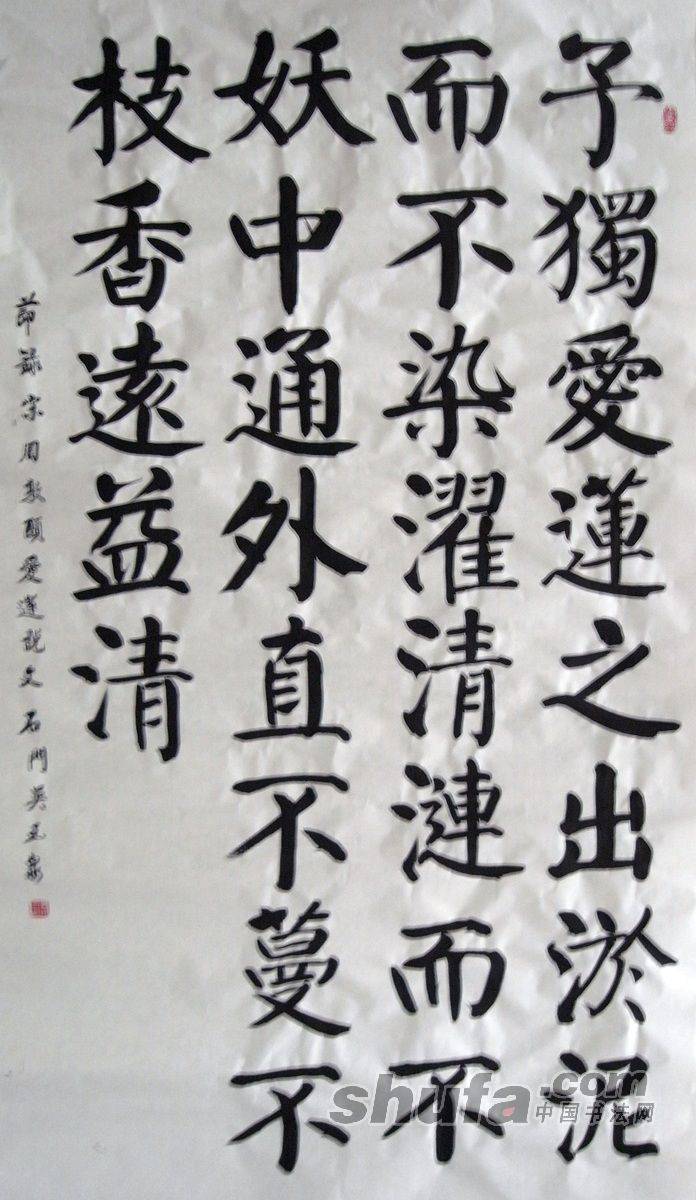 予獨愛蓮之出淤泥
而不染濯清漣而不
妖中通外直不蔓不
枝香遠益清
節録宋周敦頤愛蓮説文 石門吳
shufa.com
中国书法网